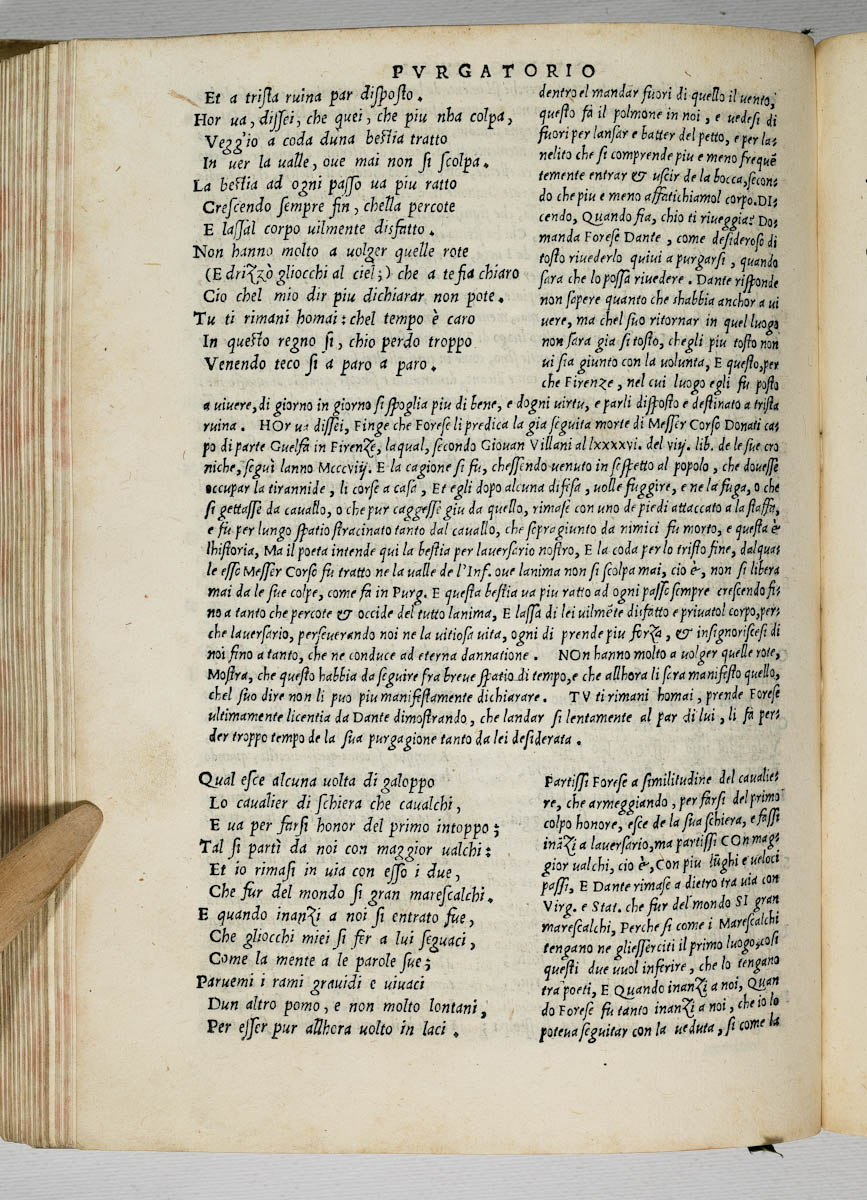 PVRGATORIO
Et a trista ruina par disposto.
Hor ua, dissei, che quei, che piu nha colpa,
Veggio a coda duna bestia tratto
In uer la ualle, oue mai non si scolpa.
La bestia ad ogni passo ua piu ratto
Crescendo sempre fin, chella percote
E lassal corpo uilmente disfatto.
Non hanno molto a uolger quelle rote
(E drizzò gliocchi al ciel;) che a te fia chiaro
Cio chel mio dir piu dichiarar non pote.
Tu ti rimani homai: chel tempo è caro
In questo regno si, chio perdo troppo
Venendo teco si a paro a paro.
dentro el mandar fuori di quello il uento,
questo fa il polmone in noi, e uedesi di
fuori per lansar e batter del petto, e per la-
nelito che si comprende piu e meno frequē
temente entrar & uscir de la bocca, secon-
do che piu e meno affatichiamol corpo. DI-
cendo, Quando fia, chio ti riueggia? Do-
manda Forese Dante, come desideroso di
tosto riuederlo quiui a purgarsi, quando
sara che lo possa riuedere. Dante risponde
non sapere quanto che shabbia anchor a ui
uere, ma chel suo ritornar in quel luogo
non sara gia si tosto, chegli piu tosto non
ui sia giunto con la uolunta, E questo, per
che Firenze, nel cui luogo egli fu posto
a uiuere, di giorno in giorno si spoglia piu di bene, e dogni uirtu, e parli disposto e destinato a trista
ruina. HOr ua dissei, Finge che Forese li predica la gia seguita morte di Messer Corso Donati ca-
po di parte Guelfa in Firenze, laqual, secondo Giouan Villani al lxxxxvi. del viij. lib. de le sue cro
niche, seguì lanno Mcccviij. E la cagione si fu, chessendo uenuto in sospetto al popolo, che douesse
occupar la tirannide, li corse a casa, Et egli dopo alcuna difesa, uolle fuggire, e ne la fuga, o che
si gettasse da cauallo, o che pur caggesse giu da quello, rimase con uno de piedi attaccato a la staffa,
e fu per lungo spatio stracinato tanto dal cauallo, che sopragiunto da nimici fu morto, e questa è
lhistoria, Ma il poeta intende qui la bestia per lauersario nostro, E la coda per lo tristo fine, dalqua-
le esso Messer Corso fu tratto ne la ualle de l'Inf. oue lanima non si scolpa mai, cio è, non si libera
mai da le sue colpe, come fa in Purg. E questa bestia ua piu ratto ad ogni passo sempre crescendo fi-
no a tanto che percote & occide del tutto lanima, E lassa di lei uilmēte disfatto e priuatol corpo, per-
che lauersario, perseuerando noi ne la uitiosa uita, ogni di prende piu forza, & insignoriscesi di
noi fino a tanto, che ne conduce ad eterna dannatione. NOn hanno molto a uolger quelle rote,
Mostra, che questo habbia da seguire fra breue spatio di tempo, e che allhora li sera manifesto quello,
chel suo dire non li puo piu manifestamente dichiarare. TV ti rimani homai, prende Forese
ultimamente licentia da Dante dimostrando, che landar si lentamente al par di lui, li fa per-
der troppo tempo de la sua purgagione tanto da lei desiderata.
Qual esce alcuna uolta di galoppo
Lo caualier di schiera che caualchi,
E ua per farsi honor del primo intoppo;
Tal si partì da noi con maggior ualchi:
Et io rimasi in uia con esso i due,
Che fur del mondo si gran marescalchi.
E quando inanzi a noi si entrato fue,
Che gliocchi miei si fer a lui seguaci,
Come la mente a le parole sue;
Paruemi i rami grauidi e uiuaci
Dun altro pomo, e non molto lontani,
Per esser pur allhora uolto in laci.
Partissi Forese a similitudine del caualie-
re, che armeggiando, per farsi del primo
colpo honore, esce de la sua schiera, e fassi
ināzi a lauersario, ma partissi COn mag-
gior ualchi, cio è, Con piu lūghi e ueloci
passi, E Dante rimase a dietro tra uia con
Virg. e Stat. che fur del mondo SI gran
marescalchi, Perche si come i Marescalchi
tengano ne gliesserciti il primo luogo, cosi
questi due uuol inferire, che lo tengano
tra poeti, E Quando inanzi a noi, Quan
do Forese fu tanto inanzi a noi, che io lo
poteua seguitar con la ueduta, si come la